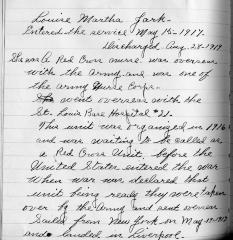 Louise Martha Jark-
Entered the service May 15-1917.
Discharged Aug. 28-1919.
She was a Red Cross nurse. was overseas
with the Army and was one of
the army Nurse Corps-
She went overseas with the
St. Louis Base Hospital #21.
This unit was organized in 1916
and was waiting to be called as
a Red Cross Unit, before the
United States entered the war
When war was declared that
unit being ready they were taken
over by the Army and sent
Sailed from New York on May 19-1917
and landed in Liverpool-